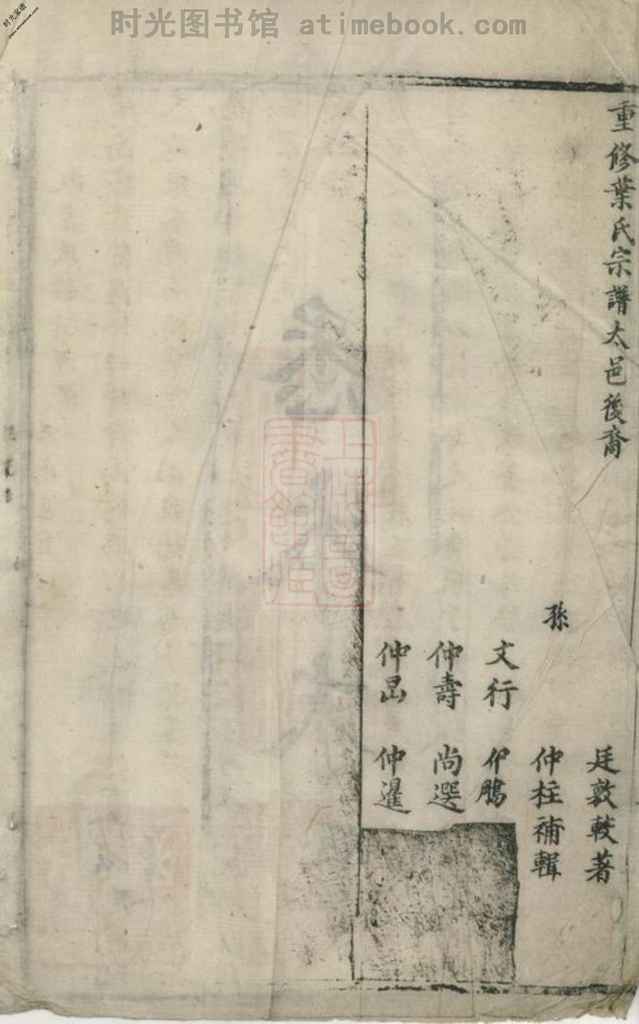 时光图书馆 atimebook.com
重修葉氏宗譜太邑後裔
廷敦較著
孫
仲柱補輯
文行 仲鵬
仲壽 尚選
仲昆 仲暹